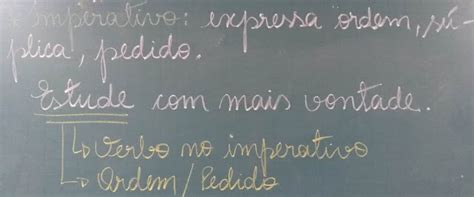 Imperativo: expressa ordem, sú-
plica, pedido.
Estude com mais vontade.
Verbo no imperativo
Ordem/Pedido